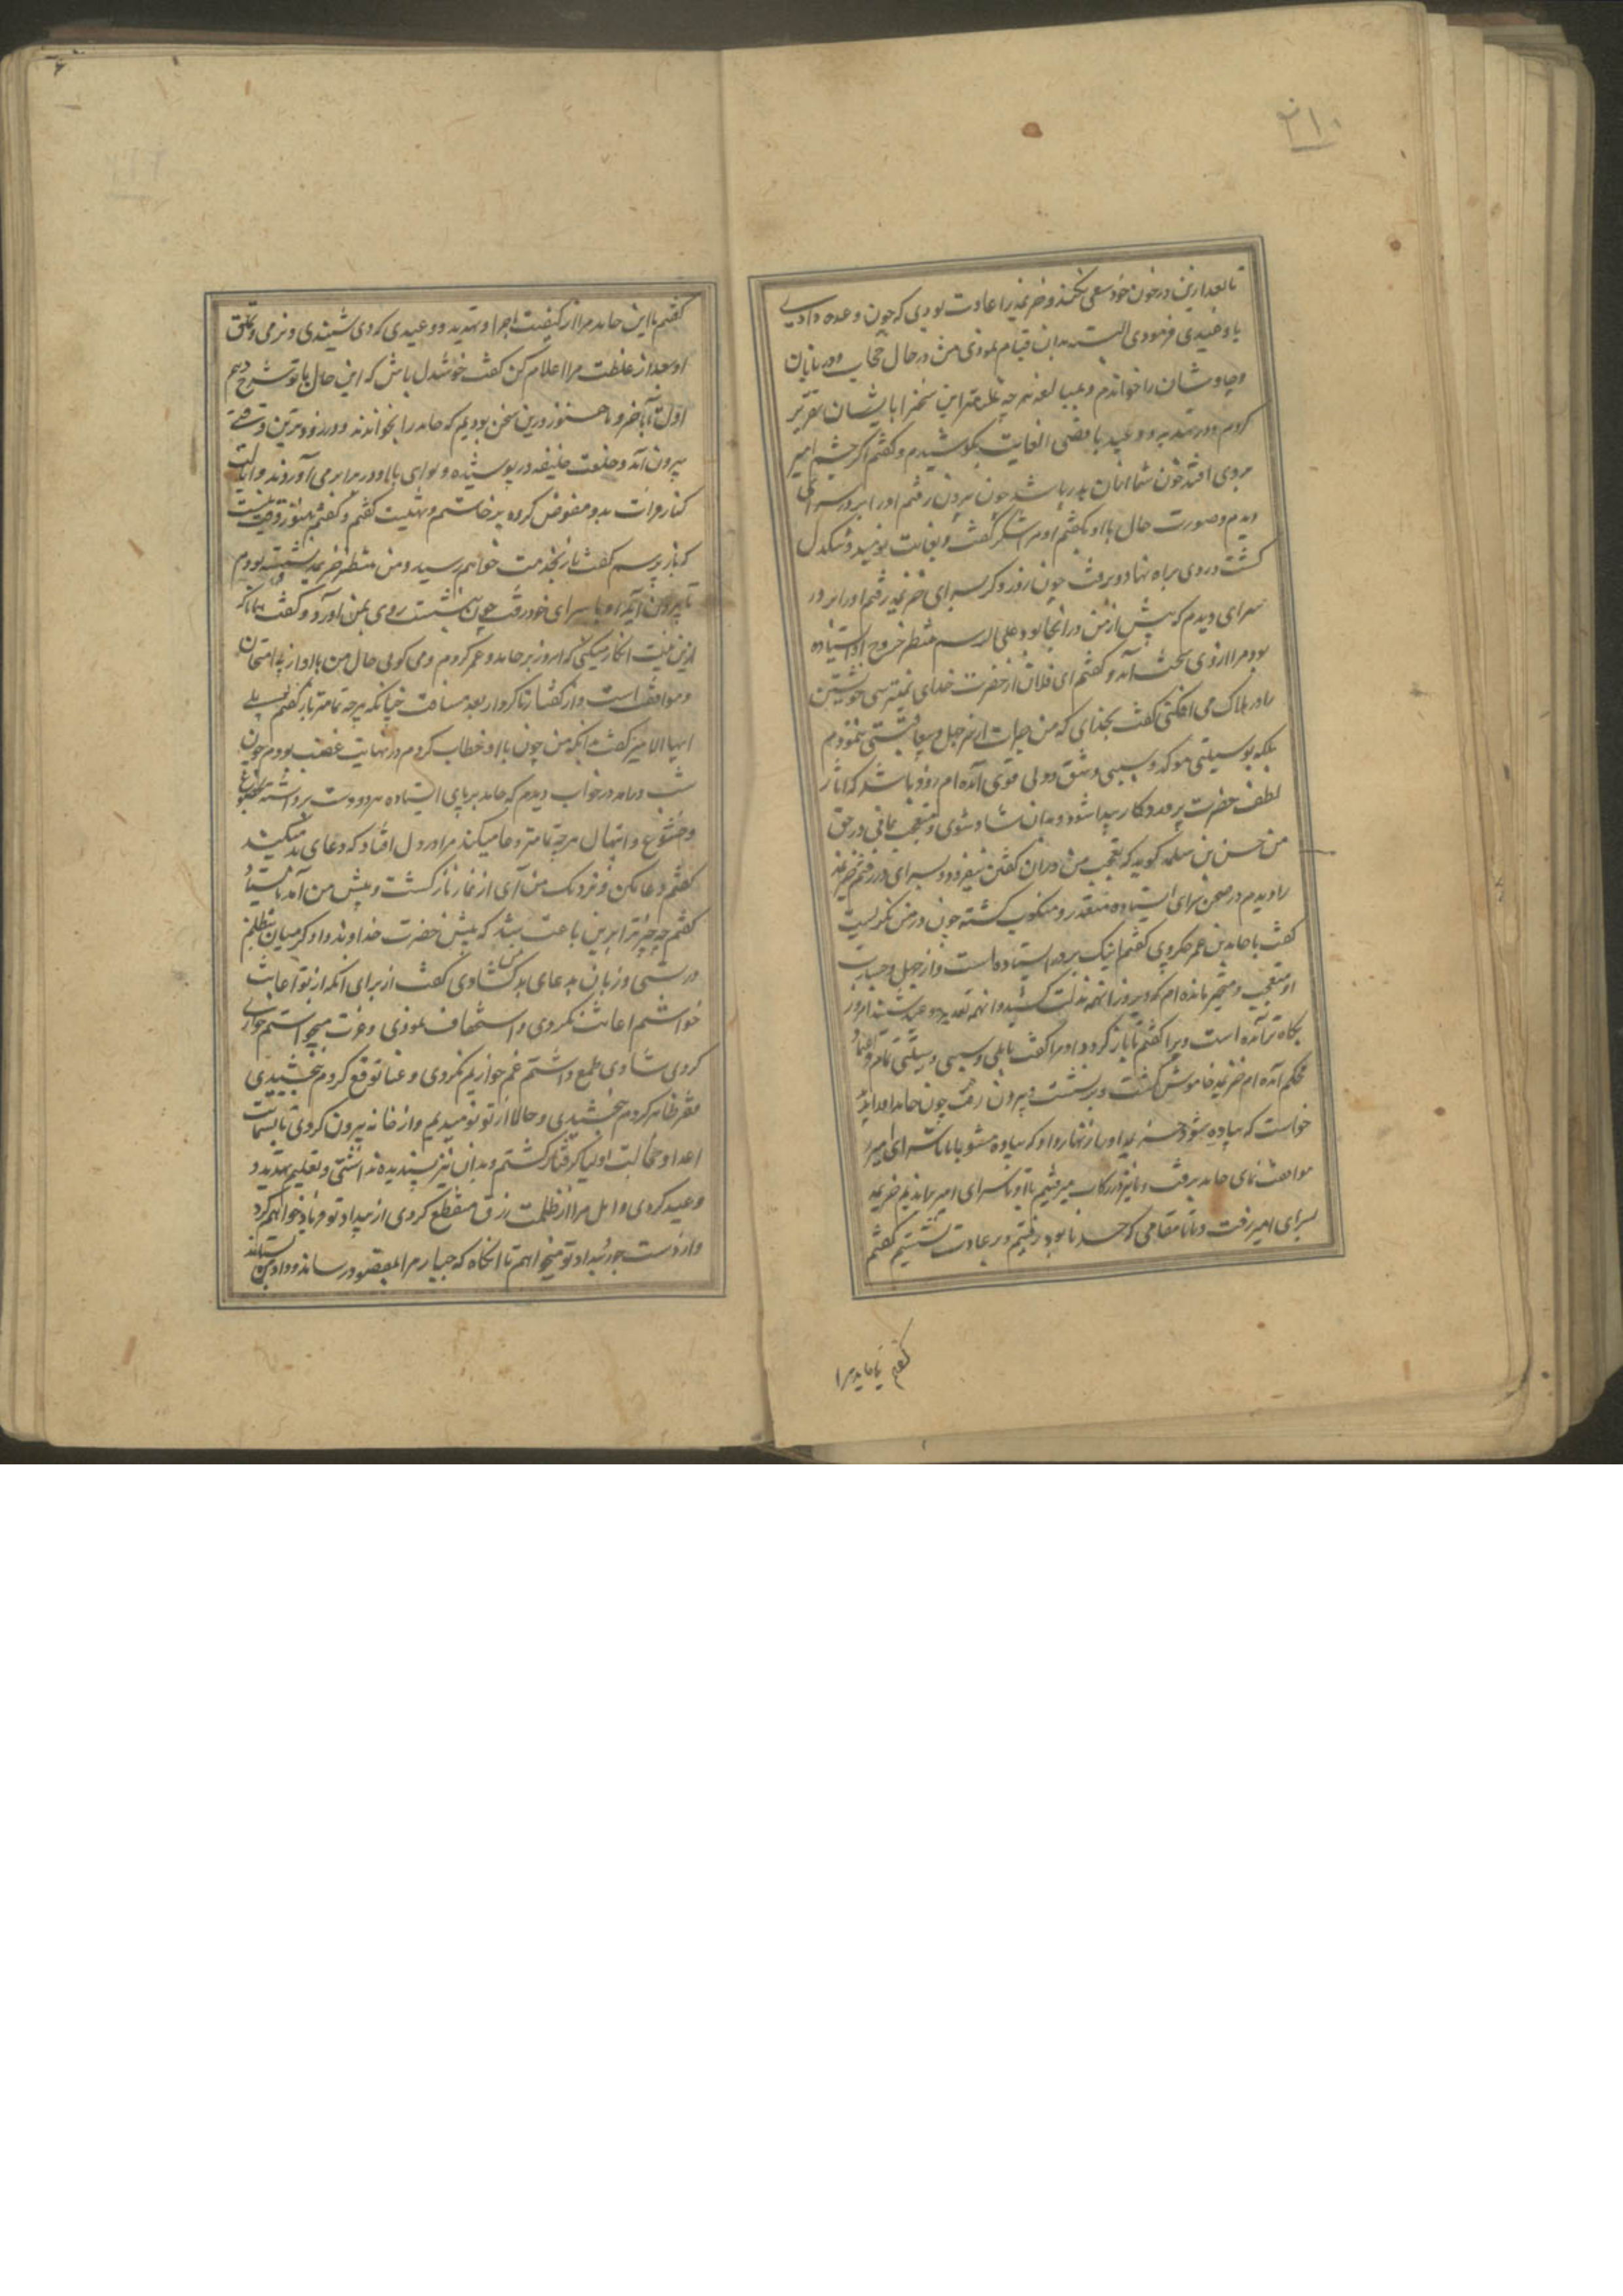 تا بعد ازین در خون خود سعی نکنند و خزیمه را عادت بودی که چون وعده دادی
یا وعیدی فرمودی البته بدان قیام نمودی من در حال حجاب و دربانان
و چاوشان را خواندم و بمبالغه هر چه تمامتر این سخن با ایشان تقریر
کردم و در تهدید و وعید باقصی الغایت بکوشیدم و گفتم اگر چشم امیر
بروی افتد خون شما باشد چون بیرون رفتم او را بر در سرای
دیدم و صورت حال با او بگفتم او مرا شکر گفت و بغایت نومید و تنگدل
گشت و روی براه نهاد و برفت چون روز دیگر بسرای خزیمه رفتم او را بر در
سرای دیدم که پیش از من در آنجا بود و علی الرسم منتظر خروج او ایستاده
بود مرا از وی سخت آمد و گفتم ای فلان از حضرت خدای نمیترسی خویشتن
را در هلاک می افکنی گفت بخدای که من این جرات از سر جهل و بی ننمودم
بلکه بوسیلتی موکد و سببی وثیق و دلی قوی آمده ام زود باشد که آثار
لطف حضرت پروردکار پیدا شود و بدان شاد شوی و تعجب نمائی در حق
من حسن بن سلمه گوید که تعجب من در ان گفتن بیفزود و بسرای در رفتم خزیمه
را دیدم در صحن سرای ایستاده چون در من نگریست
گفت با حامد بن عمر چکردی گفتم اینک بر در ایستاده است و از جهل و جسارت
او متعجب و متحیر مانده ام که دیروز آنهمه مذلت کشید و آنهمه تهدید و وعید شنید امروز
بگاه تر آمده است و ویرا گفتم تا باز گردد او مرا گفت با دلی و سببی و وسیلتی تمام و
محکم آمده ام خزیمه خاموش گشت و برنشست و بیرون رفت چون حامد او را بدید
خواست که پیاده شود خزیمه او را زنهار داد که پیاده مشو با ما تا سرای امیر
موافقت نمای حامد برفت و ما نیز در رکاب میرفتیم تا او تا سرای امیر براندیم خزیمه
بسرای امیر رفت و ما تا مقامی که حد ما بود رفتیم و بر عادت بنشستیم گفتم
گفتم با حامد مرا
گفتم با این حامد مرا از کیفیت ماجرا و تهدید و وعیدی که دی شنیدی و نرمی و تملق
او بعد از غلظت مرا اعلام کن گفت خوشدل باش که این حال با تو شرح دهم
اول تا بآخر و ما هنوز درین سخن بودیم که حامد را بخواندند و در زودترین وقتی
بیرون آمد و خلعت خلیفه در پوشیده و لوای با او در برابر می آوردند و ایالت
کنار فرات بدو مفوض کرده برخاستم و تهنیت گفتم و گفتم هنوز وقت نیست
که باز پرسم گفت باز بخدمت خواهم رسید و من منتظر خزیمه نشسته بودم
تا بیرون آید او با سرای خود رفت چون بنشست روی بمن آورد و گفت همانا که
ازین معنیت انکار میکنی که امروز بر حامد و عمر کردم و می گوئی حال من با او از پی امتحان
و موافق است و از گفتار تا کردار بعد مسافت چنانکه هر چه تمامتر بار گفتم بلی
ایها الامیر گفت آنگه من چون با او خطاب کردم در نهایت غضب بودم چون
شب درآمد در خواب دیدم که حامد بر پای ایستاده هر دو دست برداشته بخضوع
و خشوع و ابتهال هر چه تمامتر دعا میکند مرا در دل افتاد که دعای بد میکند
گفتم دعا مکن و نزدیک من آی از نماز باز گشت و پیش من آمد بایستاد
گفتم چه چیز ترا برین باعث شد که پیش حضرت خداوند دادگر میان بتظلم
دربستی و زبان بدعای بد من گشادی گفت از برای آنکه از تو اعانت
خواستم اعانت نکردی و استخفاف نمودی و عزت میخواستم خواری
کردی شادی طمع داشتم غم خواریم نکردی و غنا توقع کردم نبخشیدی
فقر ظاهر کردم نبخشیدی و حالا از تو نومیدیم و از خانه بیرون کردی تا بشماتت
اعدا و خجالت اولیا گرفتار گشتم و بدان نیز پسندیده نداشتی و تعلیم تهدید و
وعید کردی و امل مرا از طلب رزق منقطع کردی از بیداد تو فریاد خواهم کرد
و از دست جور و بیداد تو میخواهم تا آنگاه که جبار مرا بمقصود رساند و داد من بستاند